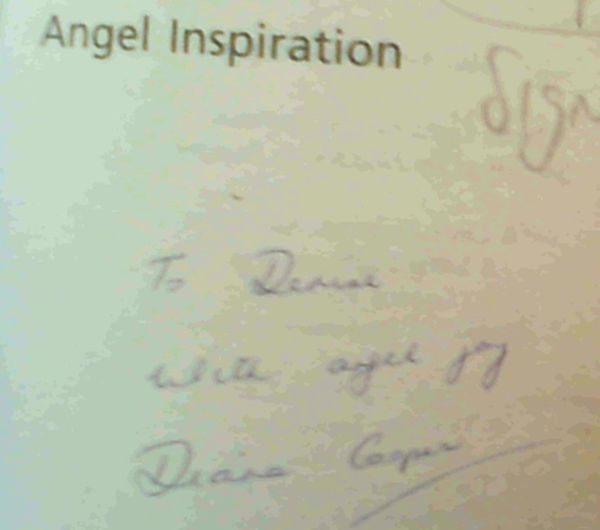 Angel Inspiration
Sign
To Denise
with angel joy
Diana Cooper